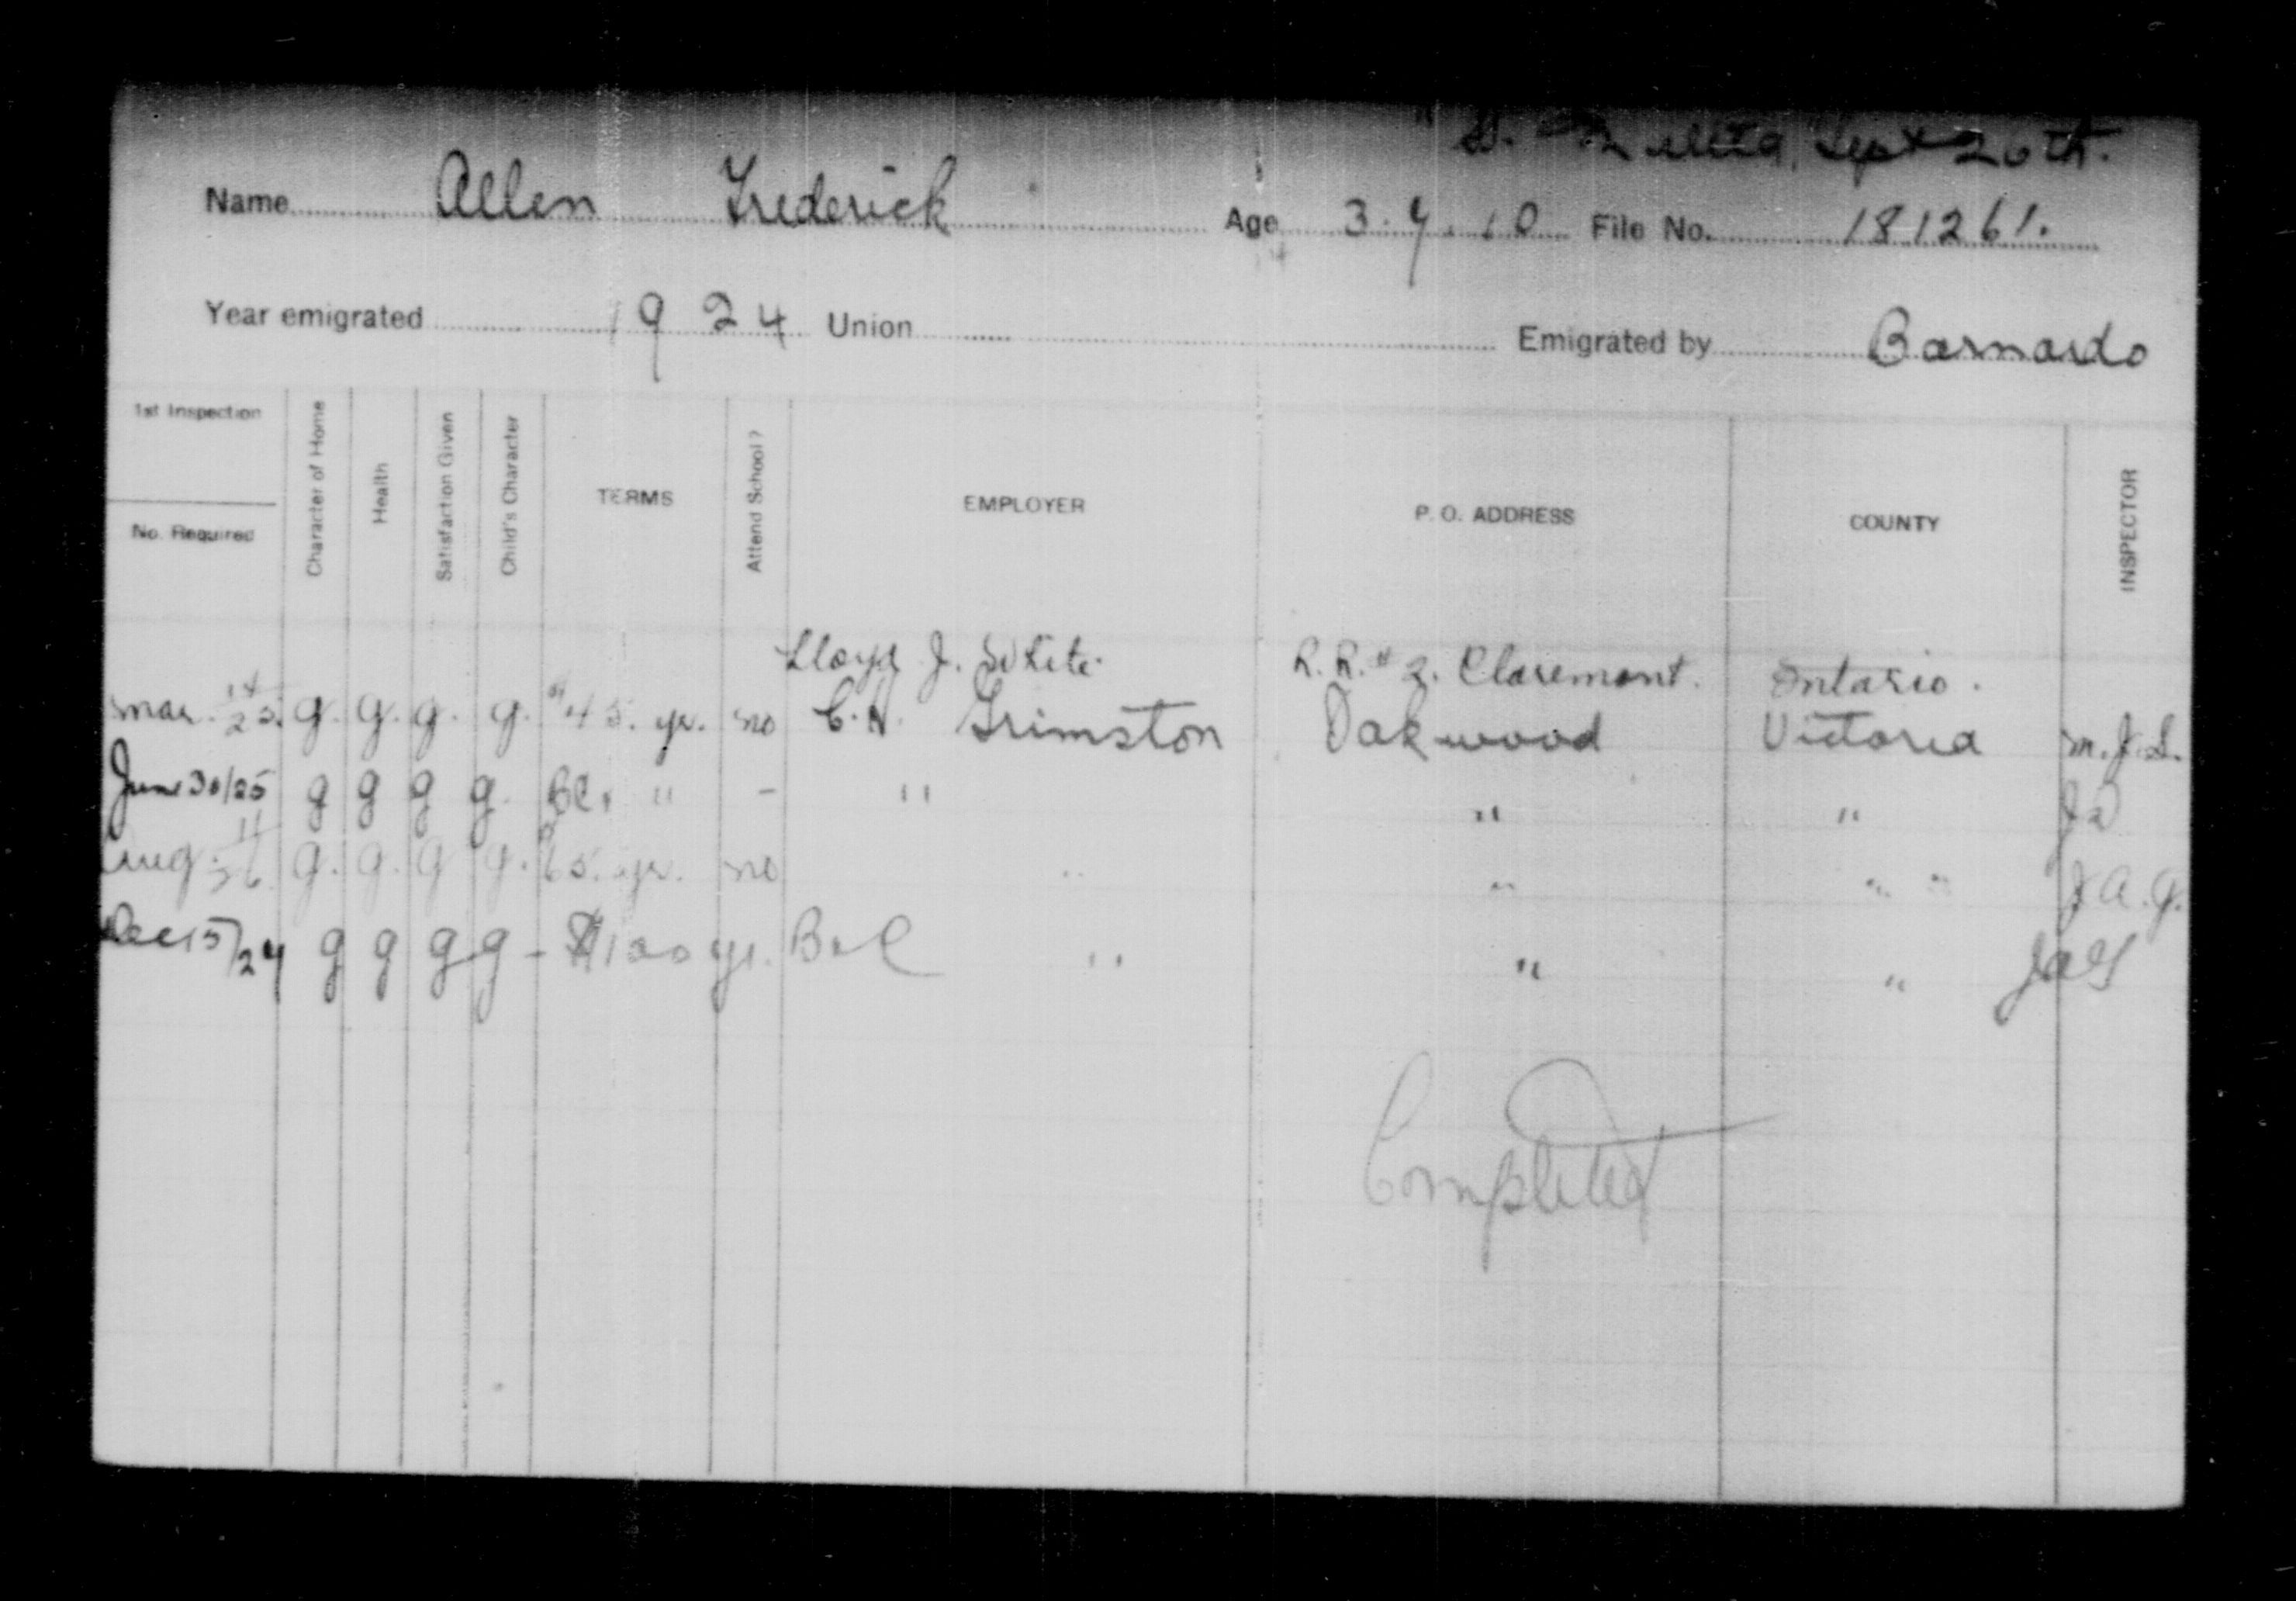 Melita, Sept 20th.
Name Allen Frederick Age 3.7.10 File No. 181261.
14
Year emigrated 1924 Union Emigrated by Barnardo
1st Inspection
No. Required
Character of Home
Health
Satisfaction Given
Child's Character
TERMS
Attend School?
EMPLOYER
P. O. ADDRESS
COUNTY
INSPECTOR
Lloyd J. White. R.R. #2. Claremont. Ontario.
Mar. 14/25. g. g. g. g. $45. yr. no C.H. Grimston Oakwood Victoria M.J.S.
June 30/25 g g g g. BC. " - " " "
Aug. 11/26 g. g. g g. 65. yr. no " " " " J.A.G.
Dec 15/27 g g g g - $100 yr. B&C " " " JAG
Completed